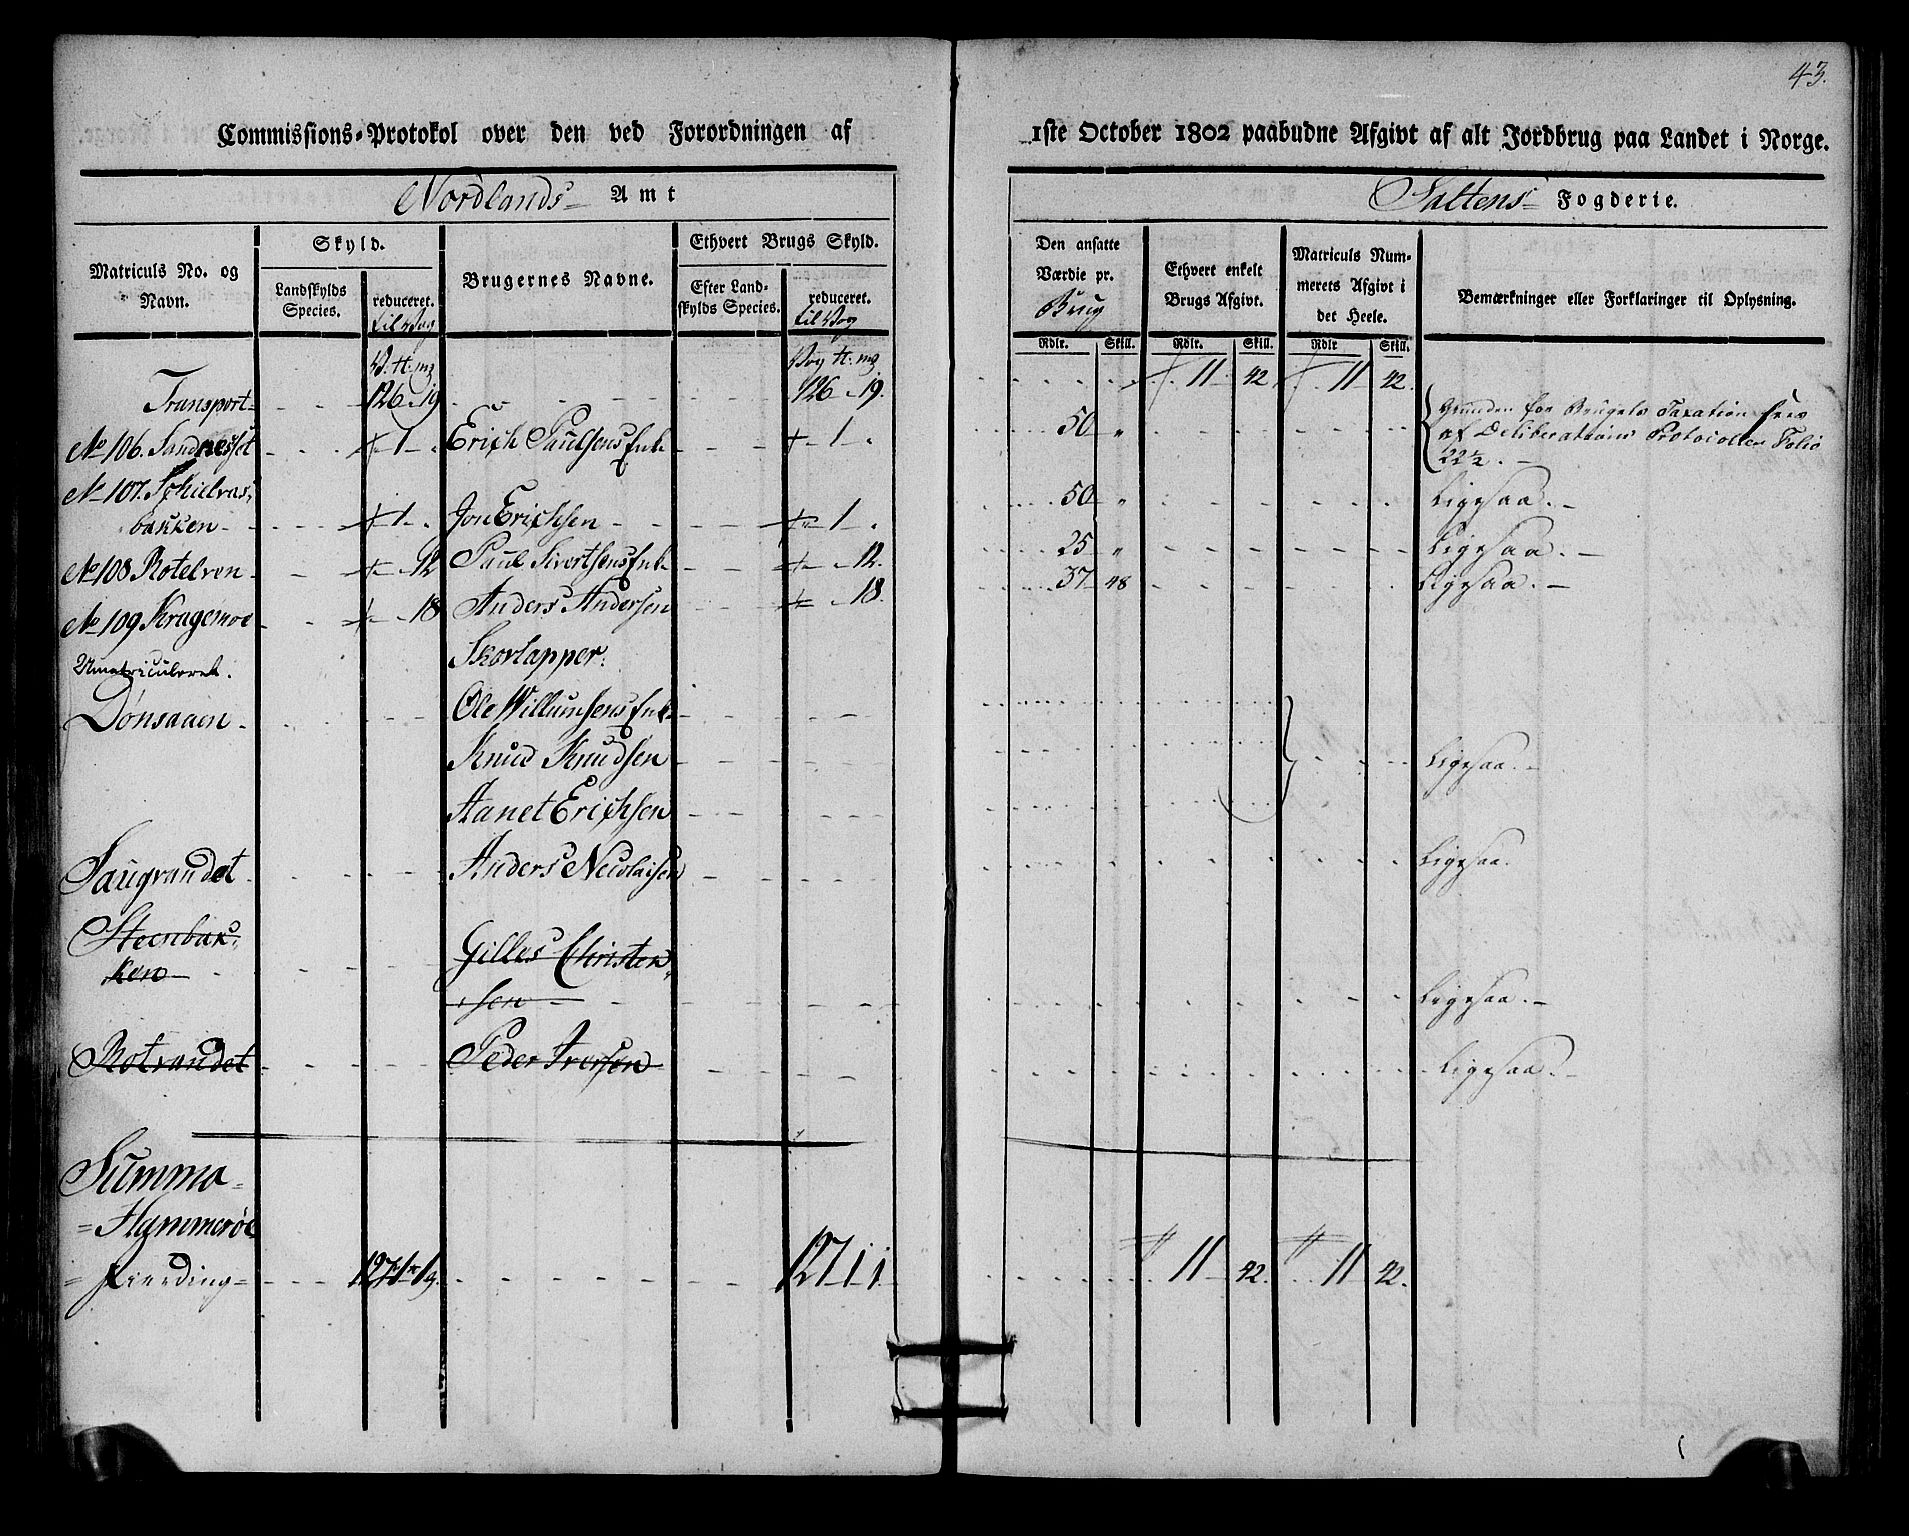 43.
Commissions-Protokol over den ved Forordningen af 1ste October 1802 paabudne Afgivt af alt Jordbrug paa Landet i Norge.
Nordlands Amt
Saltens Fogderie.
Matriculs No. og Navn.
Skyld.
Landskylds Species.
reduceret. til Vog
Brugernes Navne.
Ethvert Brugs Skyld.
Efter Landskylds Species.
reduceret. til Vog
Den ansatte Værdie pr. Brug
Ethvert enkelt Brugs Afgivt.
Matriculs Nummerets Afgivt i det Heele.
Bemærkninger eller Forklaringer til Oplysning.
Rdlr. Skill. Rdlr. Skill. Rdlr Skill.
Transport 126 19 126 19. 11 42 11 42.
No 106. Sandnesset 1 Erich Paulsens Enk 1 50 Grunden for Brugets Taxation sees
af Deliberations Protocollen Folio
22½.
No 107. Schielvas
bakken 1 Jon Erichsen 1 50 Ligesaa.
No 108 Rotelven 12 Paul Sivertsens Enk 12. 25 Ligesaa.
No 109 Kragemoe 18 Anders Andersen 18. 37 48 Ligesaa.
Umatriculeret. Skovlapper:
Dønsaaen Ole Willumsens Enk
Knud Knudsen Ligesaa.
Aanet Erichsen
Saugrandet Anders Nicolaisen Ligesaa.
Steenbak
ken Gilles Christen
sen Ligesaa.
Rotrandet Peder Iversen Ligesaa.
Summa
Hammerøe
Fierding 127 1 127 1 1 11 42. 11 42.